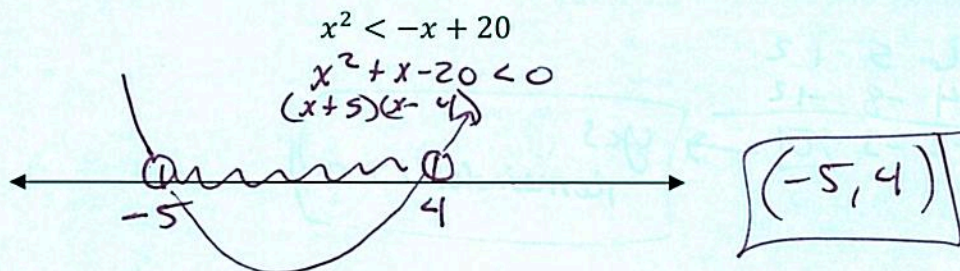 x² < -x + 20
x² + x - 20 < 0
(x+5)(x-4)
-5 4
(-5, 4)